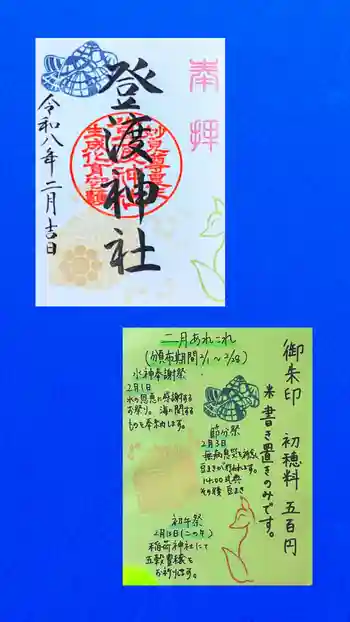 奉拝
登渡神社
令和八年二月吉日
御朱印 初穂料 五百円
※書き置きのみです。
二月あれこれ
(頒布期間2/1〜2/28)
水神奉謝祭
2月1日
水の恩恵に感謝する
お祭り。海に関する
ものを奉納します。
節分祭
2月3日
豆まきが行われます。
14:00式典
その後 豆まき
初午祭
稲荷神社にて
五穀豊穣を
お祈りします。